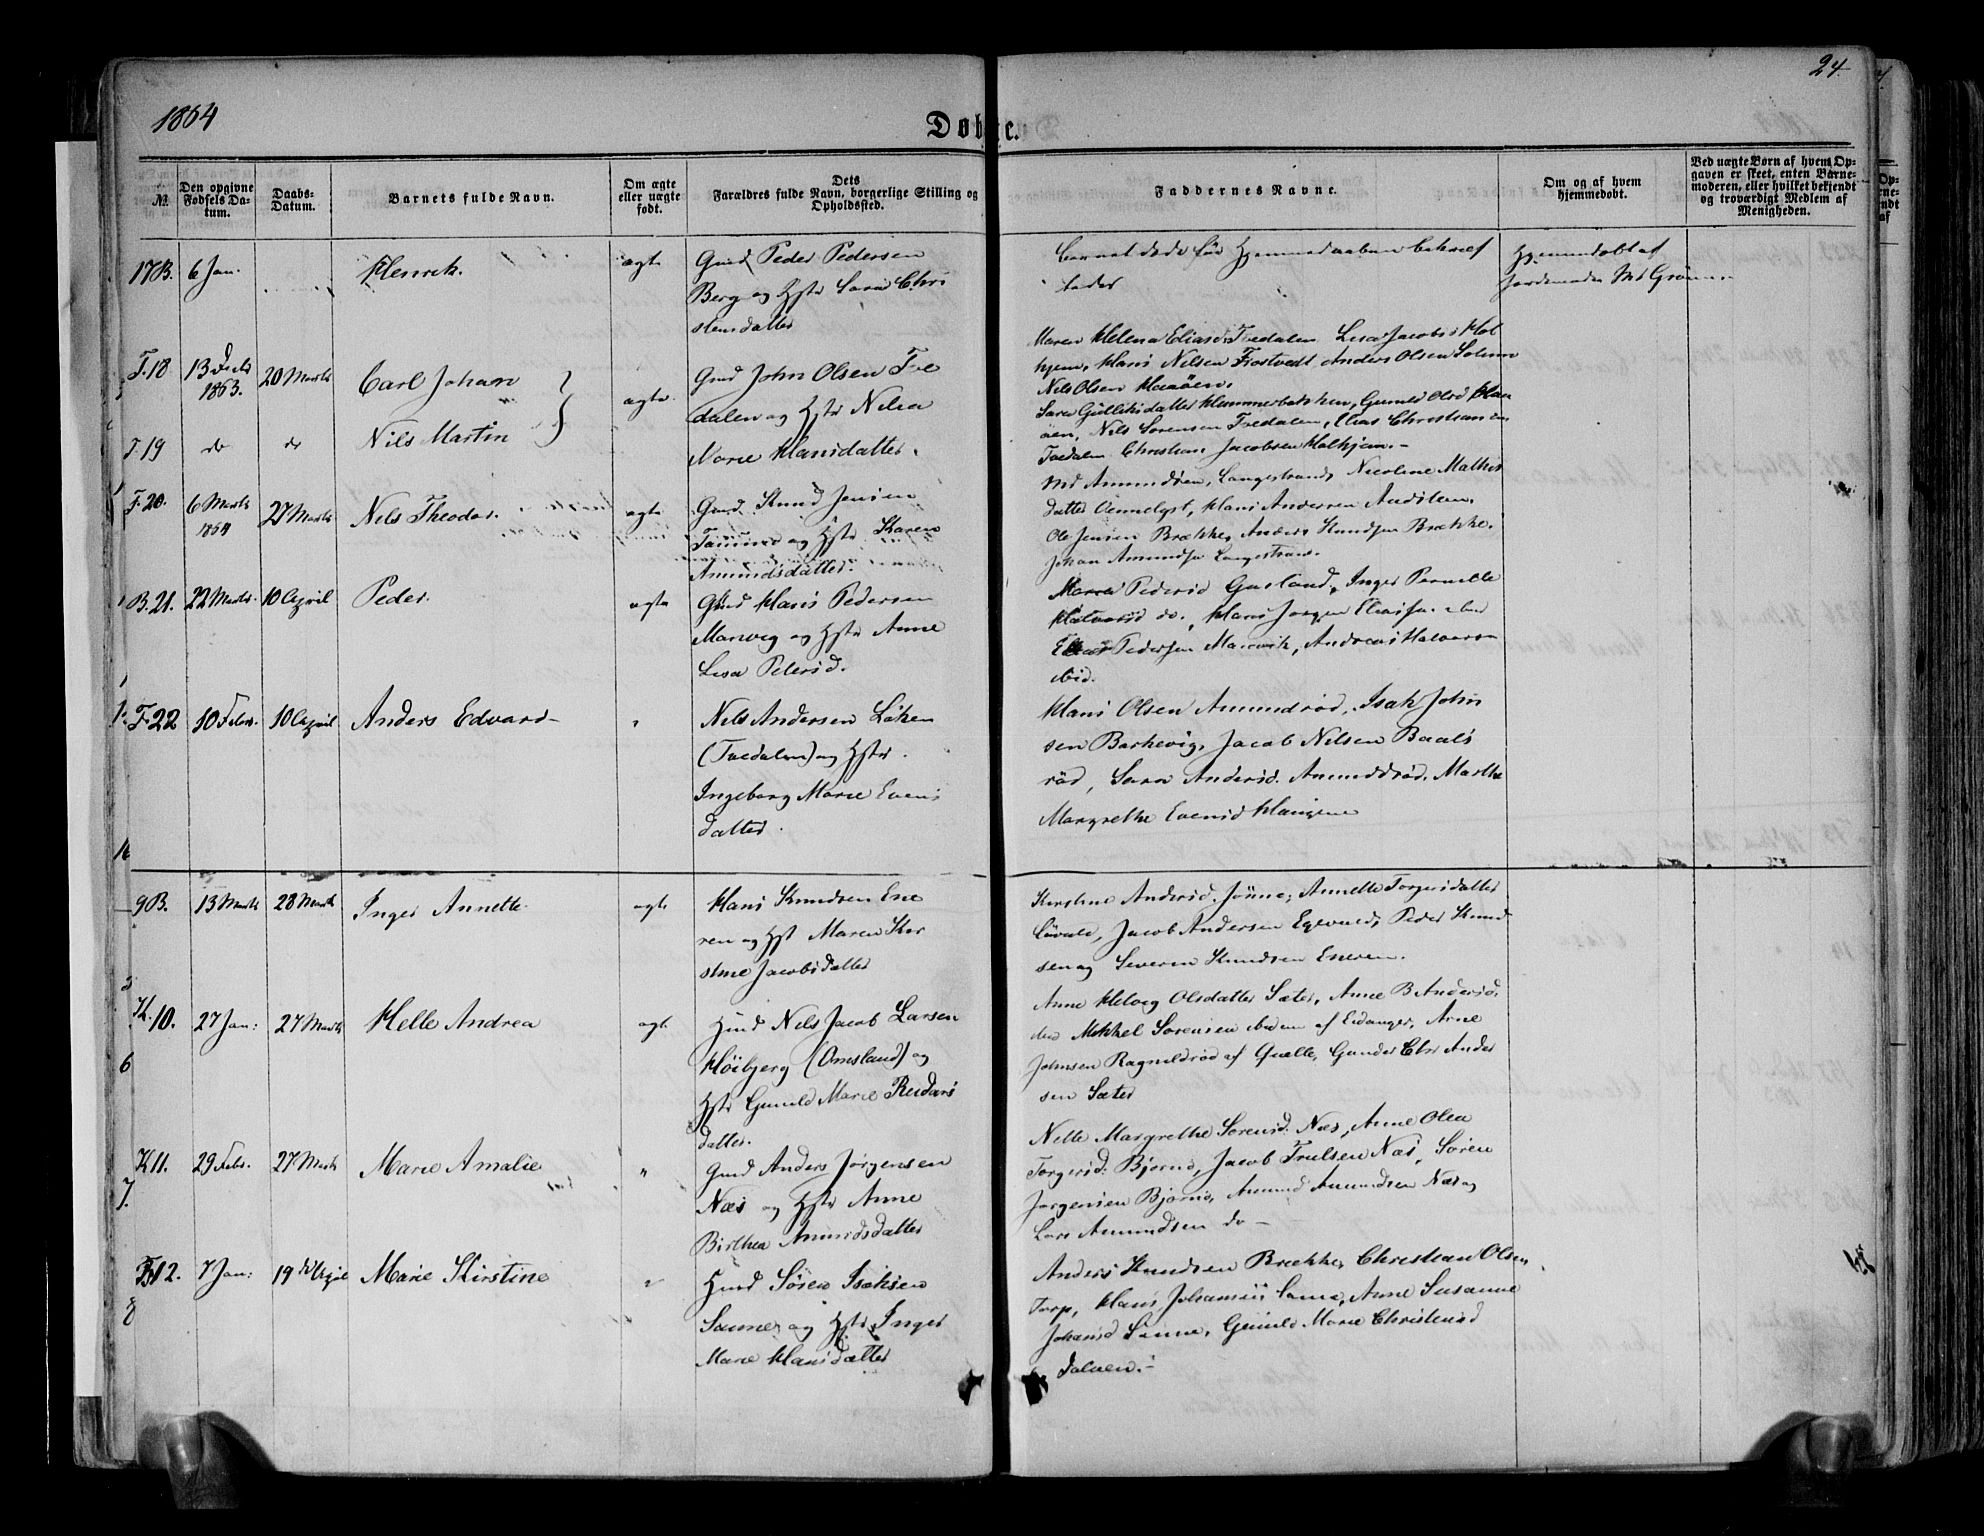 1864
24.
Døbte.
№
Den opgivne Fødsels Datum.
Daabs-Datum.
Barnets fulde Navn.
Om ægte eller uægte født.
Dets Forældres fulde Navn, borgerlige Stilling og Opholdssted.
Faddernes Navne.
Om og af hvem hjemmedøbt.
Ved uægte Børn af hvem Opgaven er skeet, enten Barnemoderen, eller hvilket bekjendt og troværdigt Medlem af Menigheden.
17 B.
6 Jan.
Henrik.
ægte
Gmd Peder Pedersen
Berg og Hstr Sara Chri
stensdatter
Barnet døde før Hjemmedaaben bekræf
tedes
Hjemmedøbt af
Jordemoder
F. 18
13 Decbr
1863.
20 Marts
Carl Johan
ægte
Gmd John Olsen Tve
dalen og Hstr Nilia
Marie Hansdatter.
Maren Helena Eliasd. Tvedalen Lisa Jacobsd Hol
hjem, Hans Nilsen Anders Olsen
Nils Olsen
F. 19
do
do
Nils Martin
Sara Gulliksdatter
Nils Sørensen Tvedalen, Elias Christian
Tvedalen Christian Jacobsen Holhjem.-
F. 20.
6 Marts
1864
27 Marts
Nils Theodor.
ægte
Gmd. Knud Jensen
og Hstr Karen
Amundsdatter.
Langestrand, Nicoline Mathis
datter Hans Andersen
Ole Jensen Brække, Anders Knudsen Brække.
Johan Amundsen Langestrand.
B. 21.
22 Marts.
10 April
Peder.
ægte
Gmd Hans Pedersen
Marveg og Hstr Anne
Lisa Petersd.
Maren Pedersd Gusland, Inger Pernille
Halvorsd do., Hans Jørgen
Pedersen Marevik, Andreas Halvorsn
ibid.
F. 22
10 Febr.
10 April
Anders Edvard-
"
Nils Andersen Løken
(Tvedalen) og Hstr.
Ingeborg Marie Evens
datter.
Hans Olsen Amundrød, Isak John
sen Barkevig, Jacob Nilsen Baals
rød, Sara Andersd. Amundrød, Marthe
Margrethe Evensd
9 B.
13 Marts
28 Marts
Inger Annette.
ægte
Hans Knudsen Ene
ren og Hst Maren Kir
stine Jacobsdatter
Kirstine Andersd. Annette Torgersdatter
Jacob Andersen Peder Knud
sen og Severin Knudsen Eneren.
K. 10.
27 Jan:
27 Marts
Helle Andrea
ægte
Gmd Nils Jacob Larsen
Høibjerg (Omsland) og
Hstr Gunild Marie Reidars
datter.
Anne Helvig Olsdatter Sæter, Anne B Andersd.
Mikkel Sørensen ibidem af Eidanger, Arne
Johnsen Ragnildrød af Qvelle, Gunder Chr Ander
sen Sæter
K 11.
29 Febr.
27 Marts
Marie Amalie
"
Gmd Anders Jørgensen
Næs og Hstr Anne
Birthea Amundsdatter
Nelle Margrethe Sørensd. Næs, Anne Olea
Torgersd. Bjørnø, Jacob Trulsen Næs, Søren
Jørgensen Bjørnø, Amund Amundsen Næs og
Lars Amundsen do -
B 12.
7 Jan:
19 de April
Marie Kirstine
"
Gmd Søren Isaksen
Sanne og Hstr Inger
Marie Hansdatter
Anders Knudsen Brække, Christian Olsen
Torp, Hans Johannes Sanne, Anne Susanne
Johansd Sanne, Gunild Marie Christensd
Dalven.-